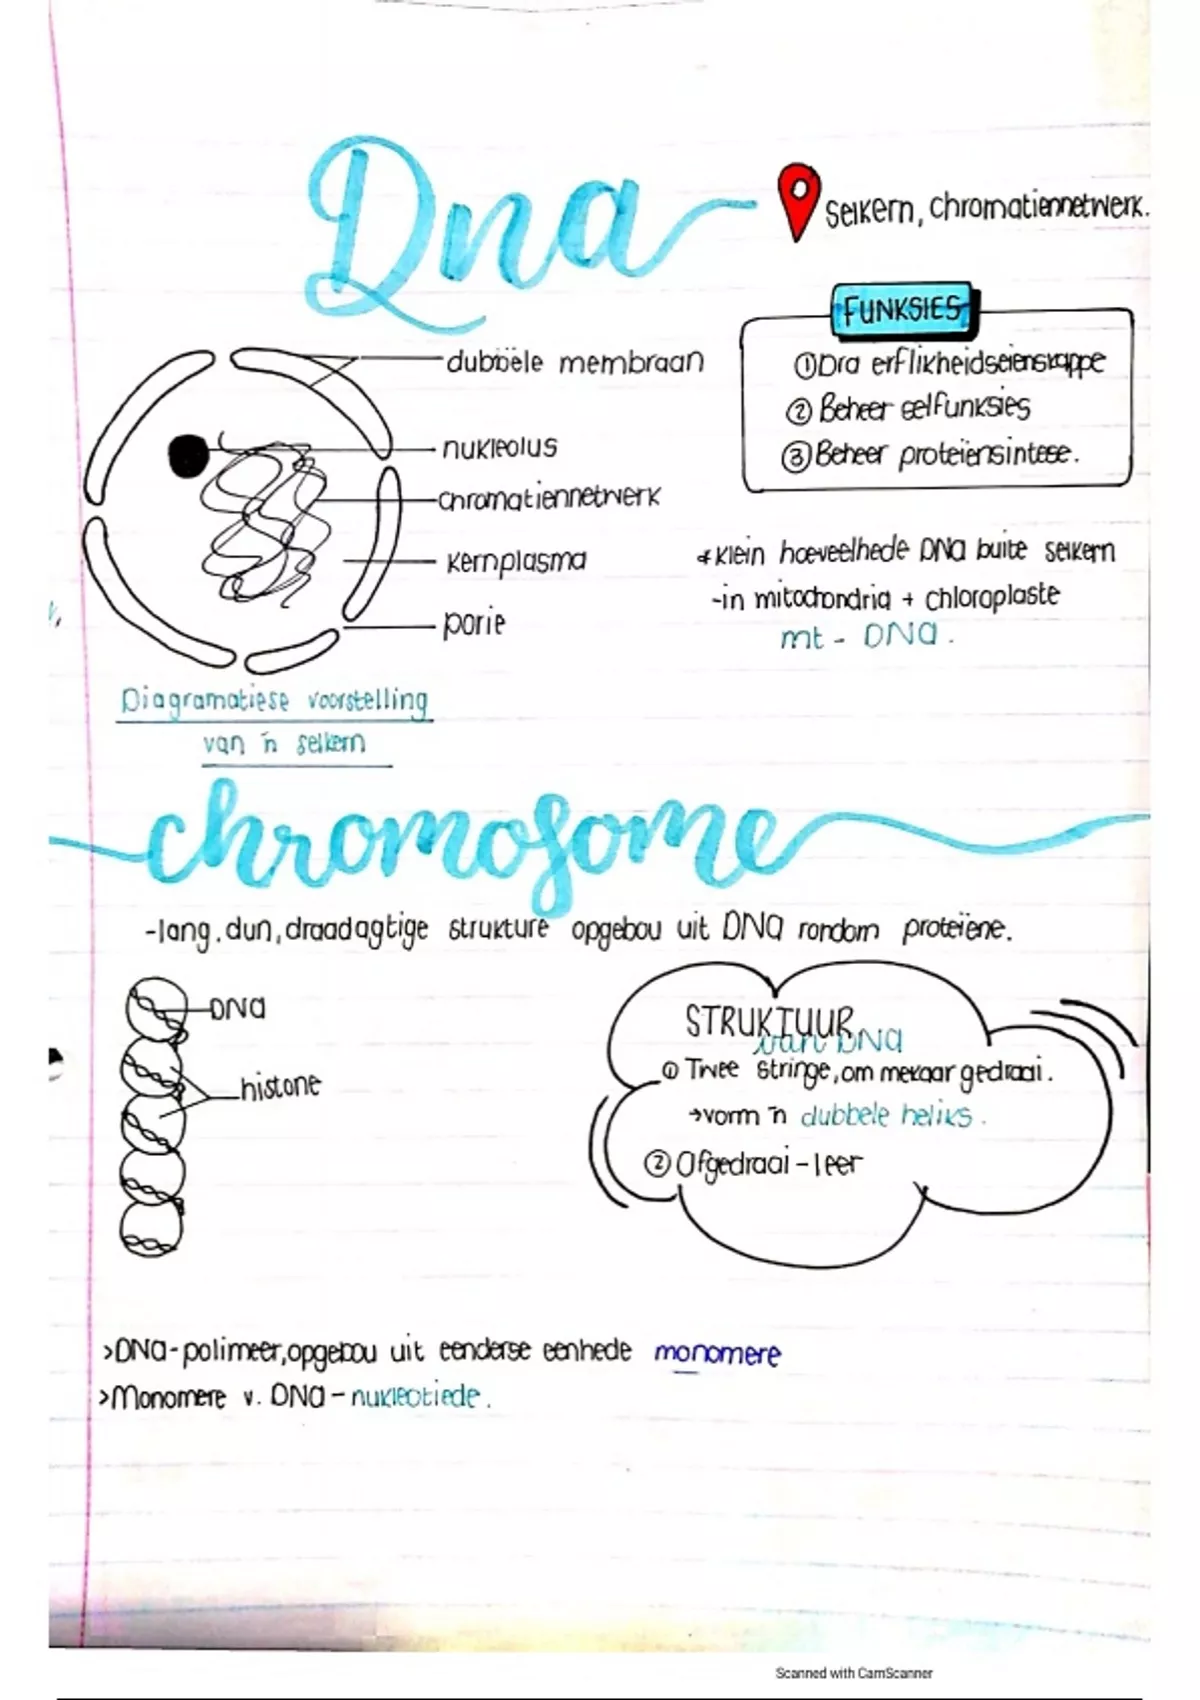 Dna
selkern, chromatiennetwerk.
FUNKSIES
① Dra erflikheidseienskappe
② Beheer selfunksies
③ Beheer proteïensintese.
dubbele membraan
nukleolus
chromatiennetwerk
kernplasma
porie
*klein hoeveelhede DNA buite selkern
-in mitochondria + chloroplaste
mt - DNA.
Diagramatiese voorstelling
van 'n selkern
chromosome
-lang, dun, draadagtige strukture opgebou uit DNA rondom proteïene.
DNA
histone
STRUKTUUR
van DNA
① Twee stringe, om mekaar gedraai.
→vorm 'n dubbele heliks.
② Afgedraai - leer
>DNA-polimeer, opgebou uit eenderse eenhede monomere
>Monomere v. DNA - nukleotiede.
Scanned with CamScanner